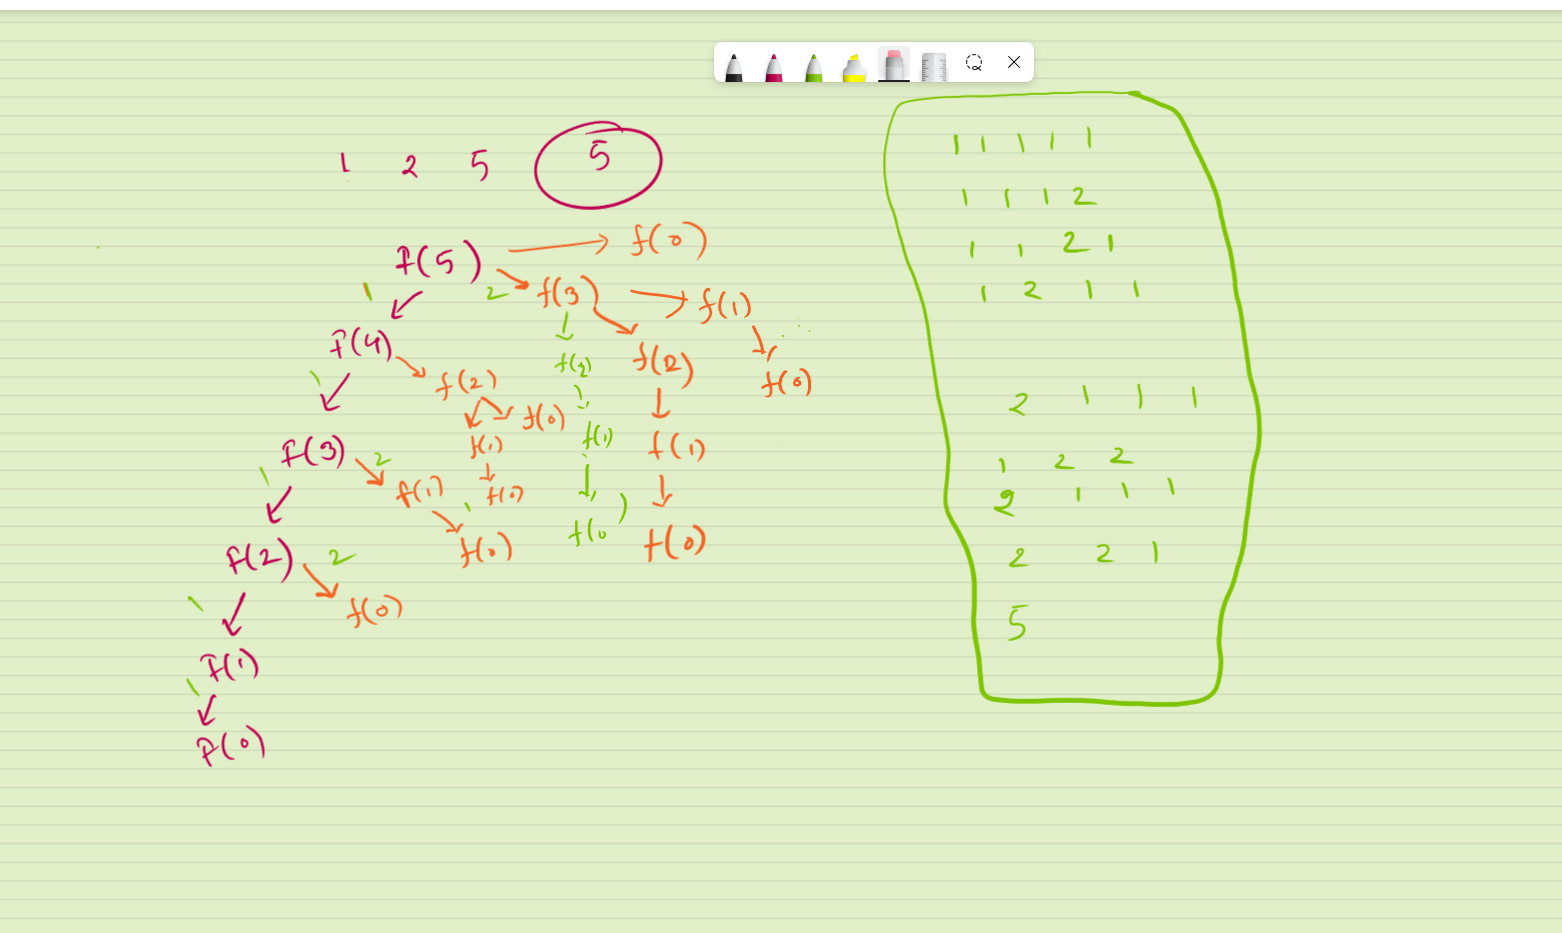 1 2 5 5
f(5) f(0)
2 f(3) f(1)
1
f(4) f(2) f(2) f(0)
1 f(2) f(0)
f(3) 2 f(1) f(1) f(1)
1 f(1) 1 f(0)
f(2) 2 f(0) f(0) f(0)
1 f(0)
f(1)
1
f(0)
1 1 1 1 1
1 1 1 2
1 1 2 1
1 2 1 1
2 1 1 1
1 2 2
2 1 1 1
2 2 1
5